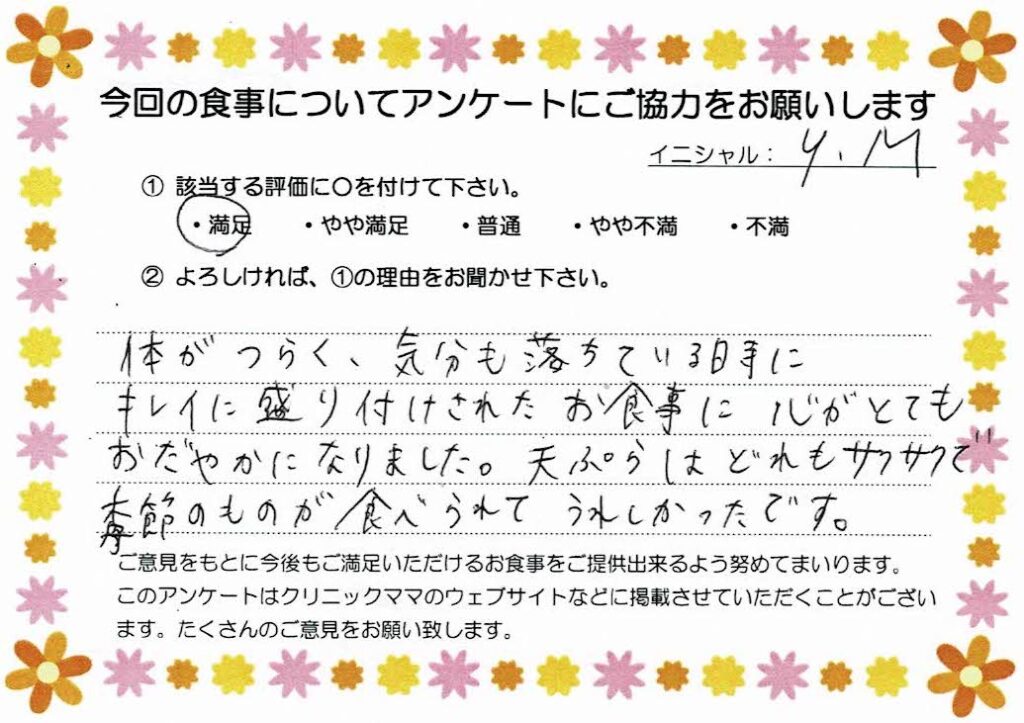 今回の食事についてアンケートにご協力をお願いします
イニシャル： Y. M
① 該当する評価に〇を付けて下さい。
・満足 ・やや満足 ・普通 ・やや不満 ・不満
② よろしければ、①の理由をお聞かせ下さい。
体がつらく、気分も落ちている時に
キレイに盛り付けされたお食事に心がとても
おだやかになりました。天ぷらはどれもサクサクで
季節のものが食べられてうれしかったです。
ご意見をもとに今後もご満足いただけるお食事をご提供出来るよう努めてまいります。
このアンケートはクリニックママのウェブサイトなどに掲載させていただくことがござい
ます。たくさんのご意見をお願い致します。